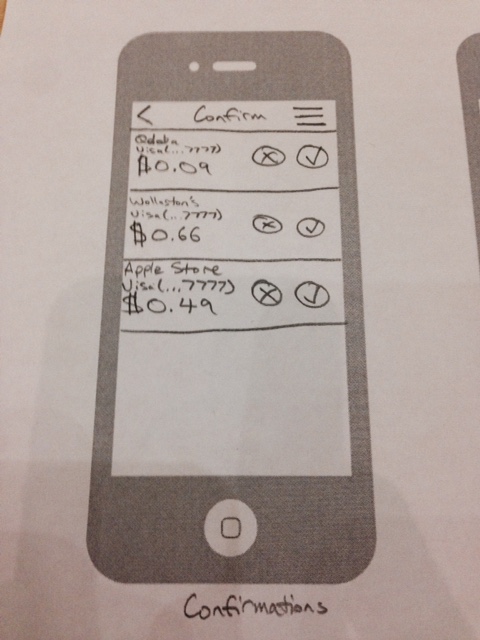 Confirm
Qdoba
Visa(...7777)
$0.09
Wollaston's
Visa(...7777)
$0.66
Apple Store
Visa(...7777)
$0.49
Confirmations